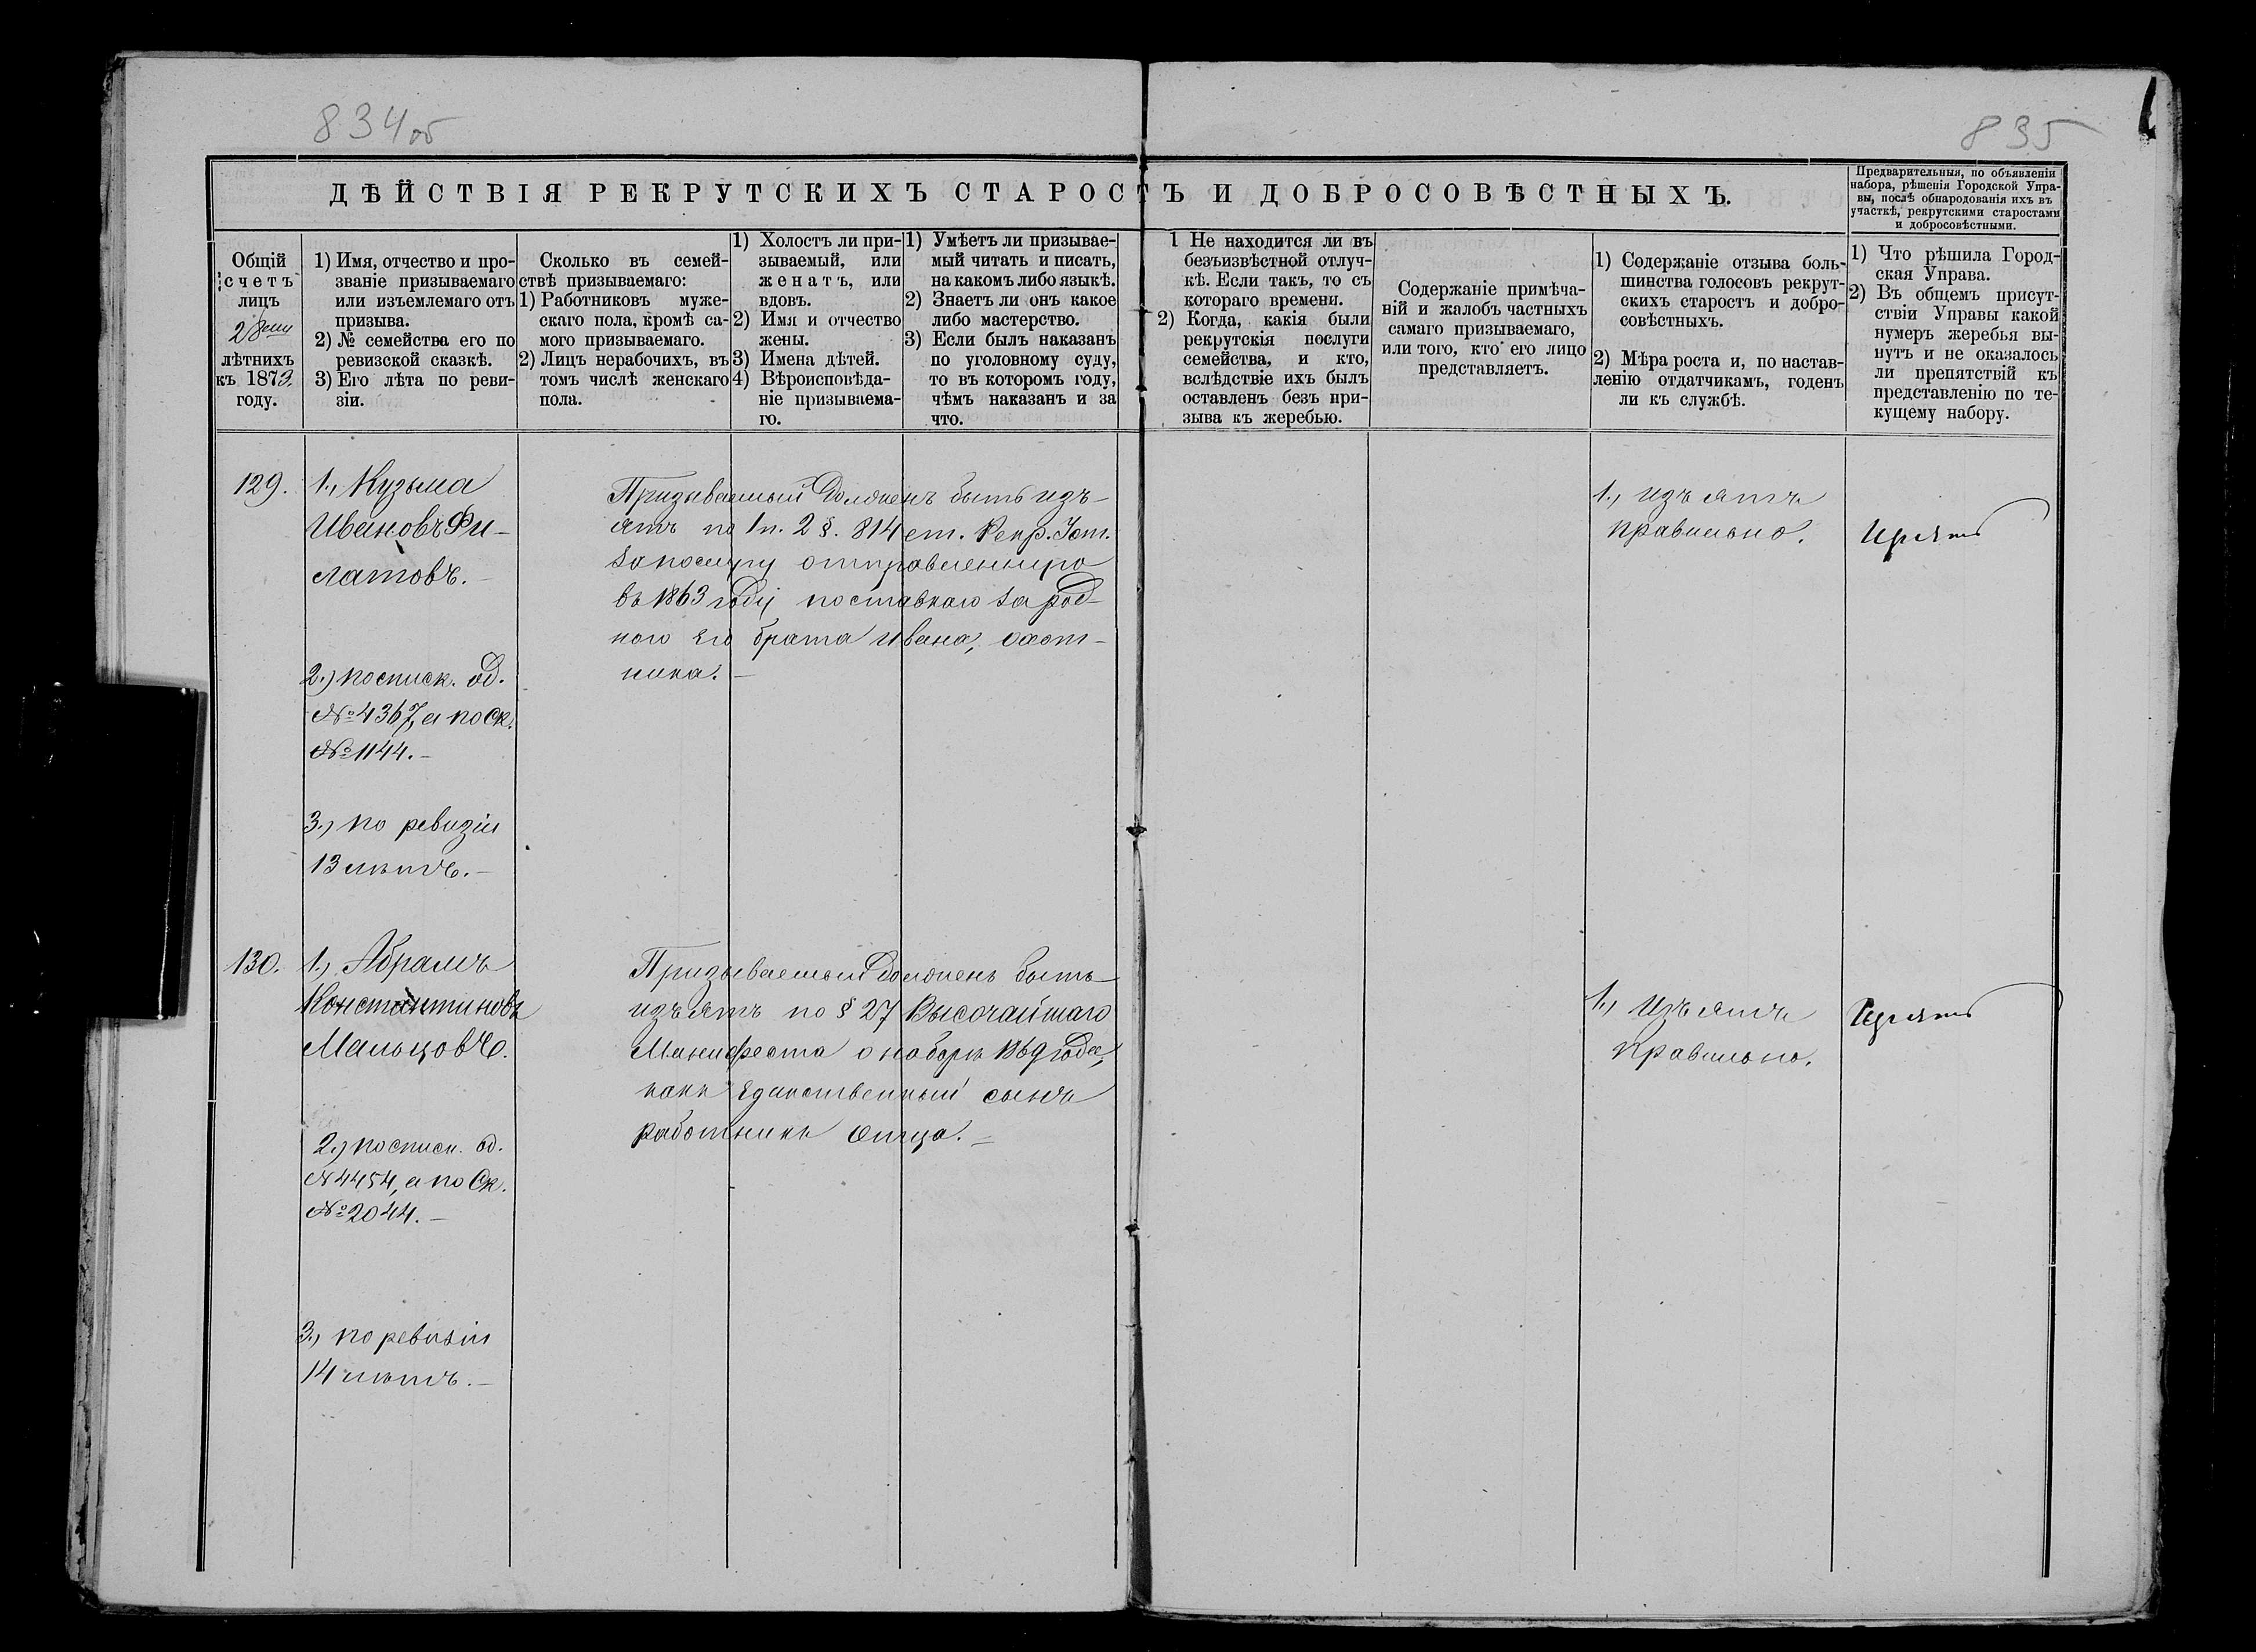 834об
835
ДѢЙСТВІЯ РЕКРУТСКИХЪ СТАРОСТЪ И ДОБРОСОВѢСТНЫХЪ.
Предварительныя, по объявленіи
набора, рѣшенія Городской Упра-
вы, послѣ обнародованія ихъ въ
участкѣ, рекрутскими старостами
и добросовѣстными.
Общій
счетъ
лицъ
28ми
лѣтнихъ
къ 1873
году.
1) Имя, отчество и про-
званіе призываемаго
или изъемлемаго отъ
призыва.
2) № семейства его по
ревизской сказкѣ.
3) Его лѣта по реви-
зіи.
Сколько въ семей-
ствѣ призываемаго:
1) Работниковъ муже-
скаго пола, кромѣ са-
мого призываемаго.
2) Лицъ нерабочихъ, въ
томъ числѣ женскаго
пола.
1) Холостъ ли при-
зываемый, или
женатъ, или
вдовъ.
2) Имя и отчество
жены.
3) Имена дѣтей.
4) Вѣроисповѣда-
ніе призываема-
го.
1) Умѣетъ ли призывае-
мый читать и писать,
на какомъ либо языкѣ.
2) Знаетъ ли онъ какое
либо мастерство.
3) Если былъ наказанъ
по уголовному суду,
то въ которомъ году,
чѣмъ наказанъ и за
что.
1 Не находится ли въ
безъизвѣстной отлуч-
кѣ. Если такъ, то съ
котораго времени.
2) Когда, какія были
рекрутскія послуги
семейства, и кто,
вслѣдствіе ихъ былъ
оставленъ безъ при-
зыва къ жеребью.
Содержаніе примѣча-
ній и жалобъ частныхъ
самаго призываемаго,
или того, кто его лицо
представляетъ.
1) Содержаніе отзыва боль-
шинства голосовъ рекрут-
скихъ старостъ и добро-
совѣстныхъ.
2) Мѣра роста и, по настав-
ленію отдатчикамъ, годенъ
ли къ службѣ.
1) Что рѣшила Город-
ская Управа.
2) Въ общемъ присут-
ствіи Управы какой
нумеръ жеребья вы-
нутъ и не оказалось
ли препятствій къ
представленію по те-
кущему набору.
129.
1., Кузьма
Ивановъ Фи-
латовъ.
2.) по списк. од.
№ 4367, а по Ск.
№ 1144.
3., по ревизіи
13 лѣтъ.
Призываемый долженъ быть изъ-
ятъ по 1 п. 2 §. 814 ст. Рекр. Уст.
за послугу отправленную
въ 1863 году поставкою за род-
ного его брата Ивана, охот-
ника.
1., изъятъ
правильно.
Изъятъ
130.
1., Абрамъ
Константиновъ
Мальцовъ.
2.) по списк. од.
№ 4454, а по Ск.
№ 2044.
3., по ревизіи
14 лѣтъ.
Призываемый долженъ быть
изъятъ по § 27 Высочайшаго
Манифеста о наборѣ 1869 года,
какъ единственный сынъ
работникъ отца.
1., Изъятъ
правильно.
Изъятъ